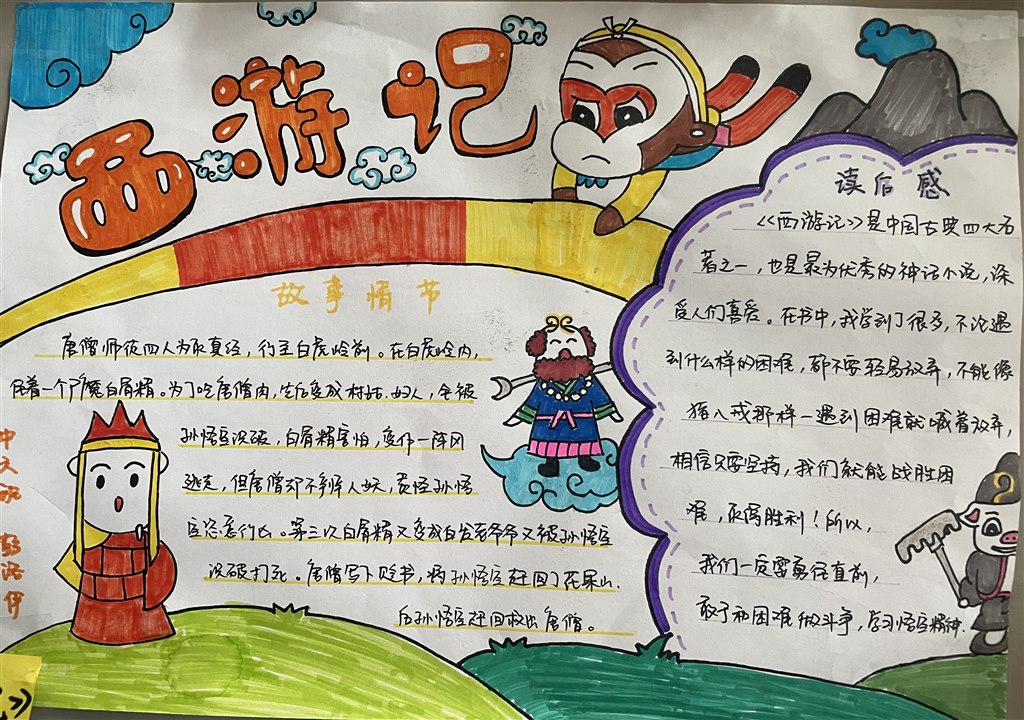 西游记
故事情节
唐僧师徒四人为取真经,行至白虎岭前。在白虎岭内,
住着一个尸魔白骨精。为了吃唐僧肉,先后变成村姑、妇人,全被
孙悟空识破,白骨精害怕,变作一阵风
逃走,但唐僧却不辨人妖,责怪孙悟
空恣意行凶。第三次白骨精又变成白发老爷爷又被孙悟空
识破打死。唐僧写下贬书,将孙悟空赶回了花果山.
后孙悟空赶回救出唐僧。
读后感
《西游记》是中国古典四大名
著之一,也是最为优秀的神话小说,深
受人们喜爱。在书中,我学到了很多,不论遇
到什么样的困难,都不要轻易放弃,不能像
猪八戒那样一遇到困难就喊着放弃,
相信只要坚持,我们就能战胜困
难,取得胜利!所以,
我们一定要勇往直前,
敢于和困难做斗争,学习悟空精神.